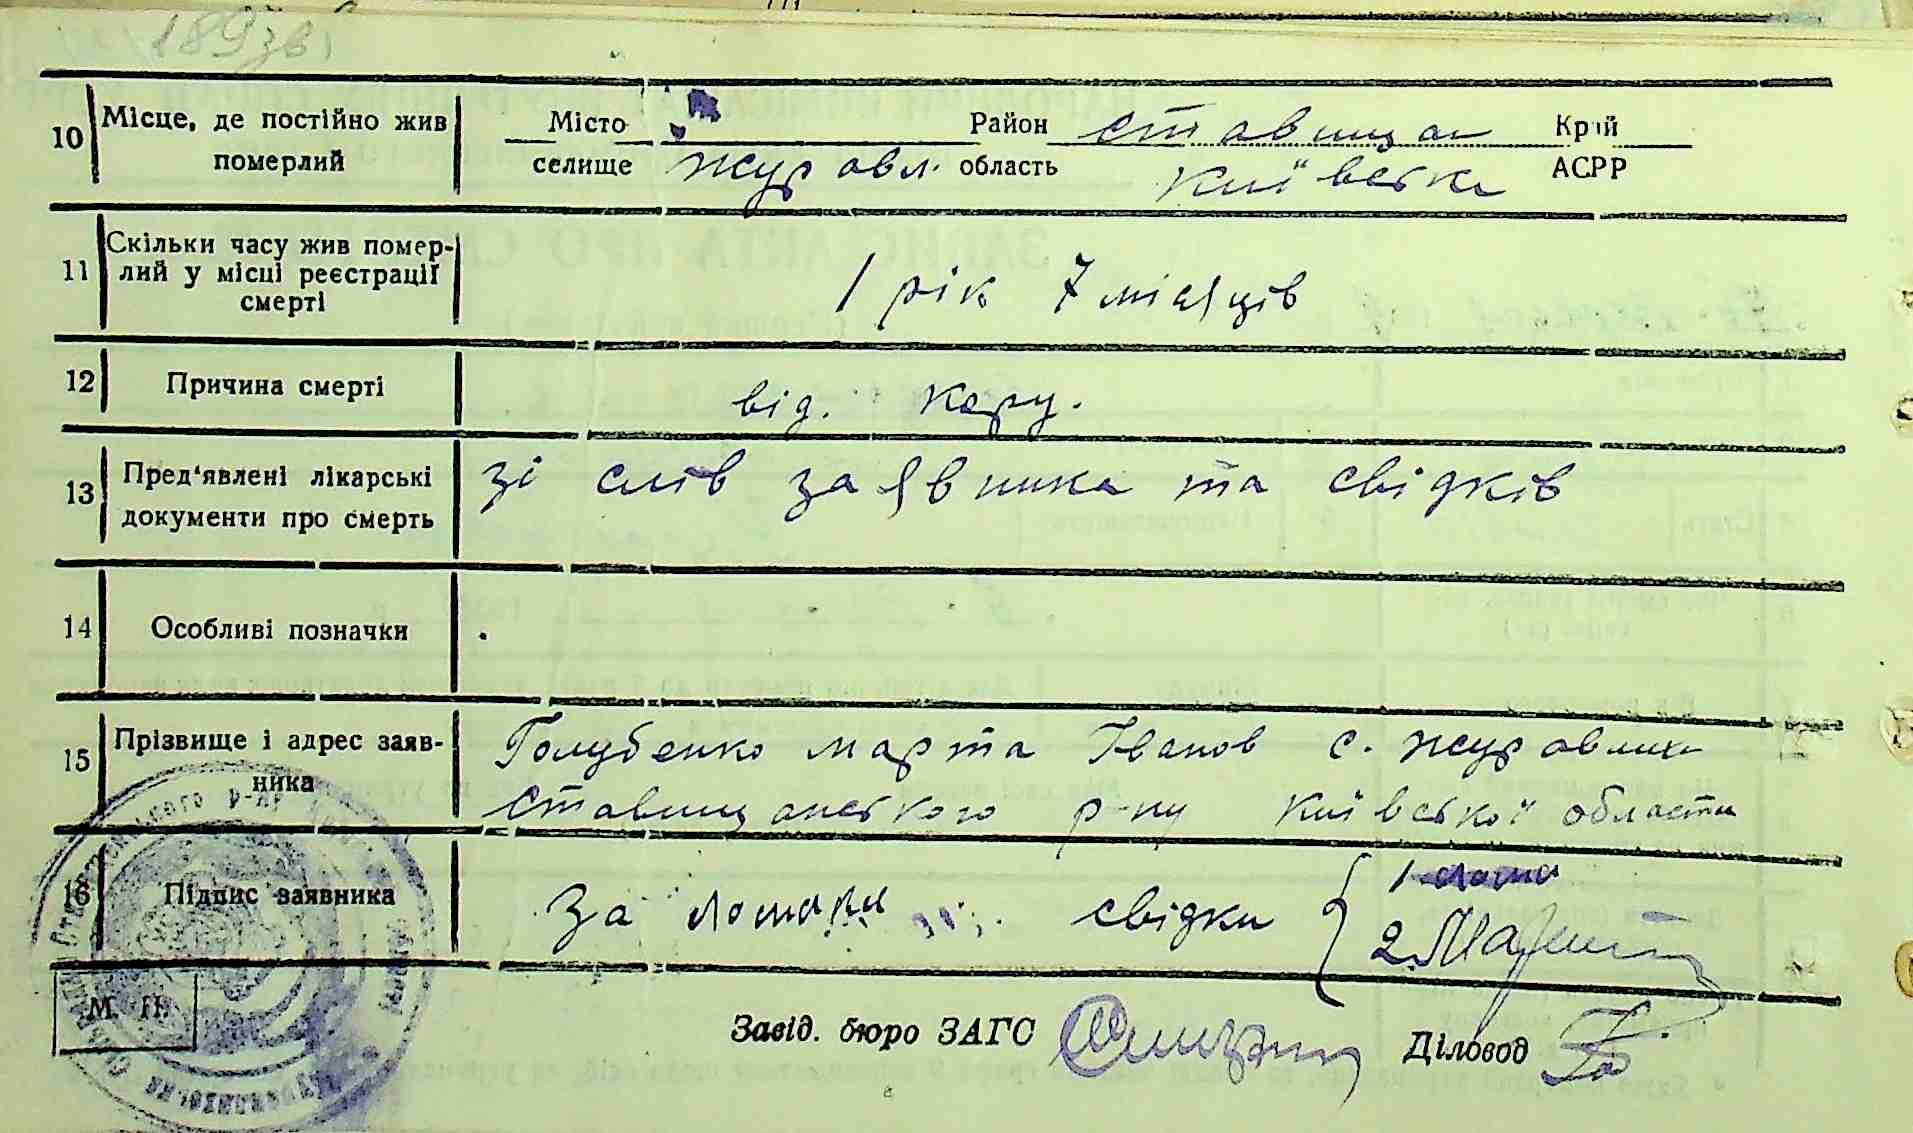 189зв
10 Місце, де постійно жив померлий
Місто Район Ставищан Край
селище Журавл. область Київська АСРР
11 Скільки часу жив помер-
лий у місці реєстрації
смерті
1 рік 7 місяців
12 Причина смерті
від. кору.
13 Пред'явлені лікарські
документи про смерть
зі слів заявника та свідків
14 Особливі позначки
15 Прізвище і адрес заяв-
ника
Голубенко Марта Іванов с. Журавлиха
Ставищанського р-ну Київської области
16 Підпис заявника
За свідки 1
2.
М. П.
Завід. бюро ЗАГС Діловод